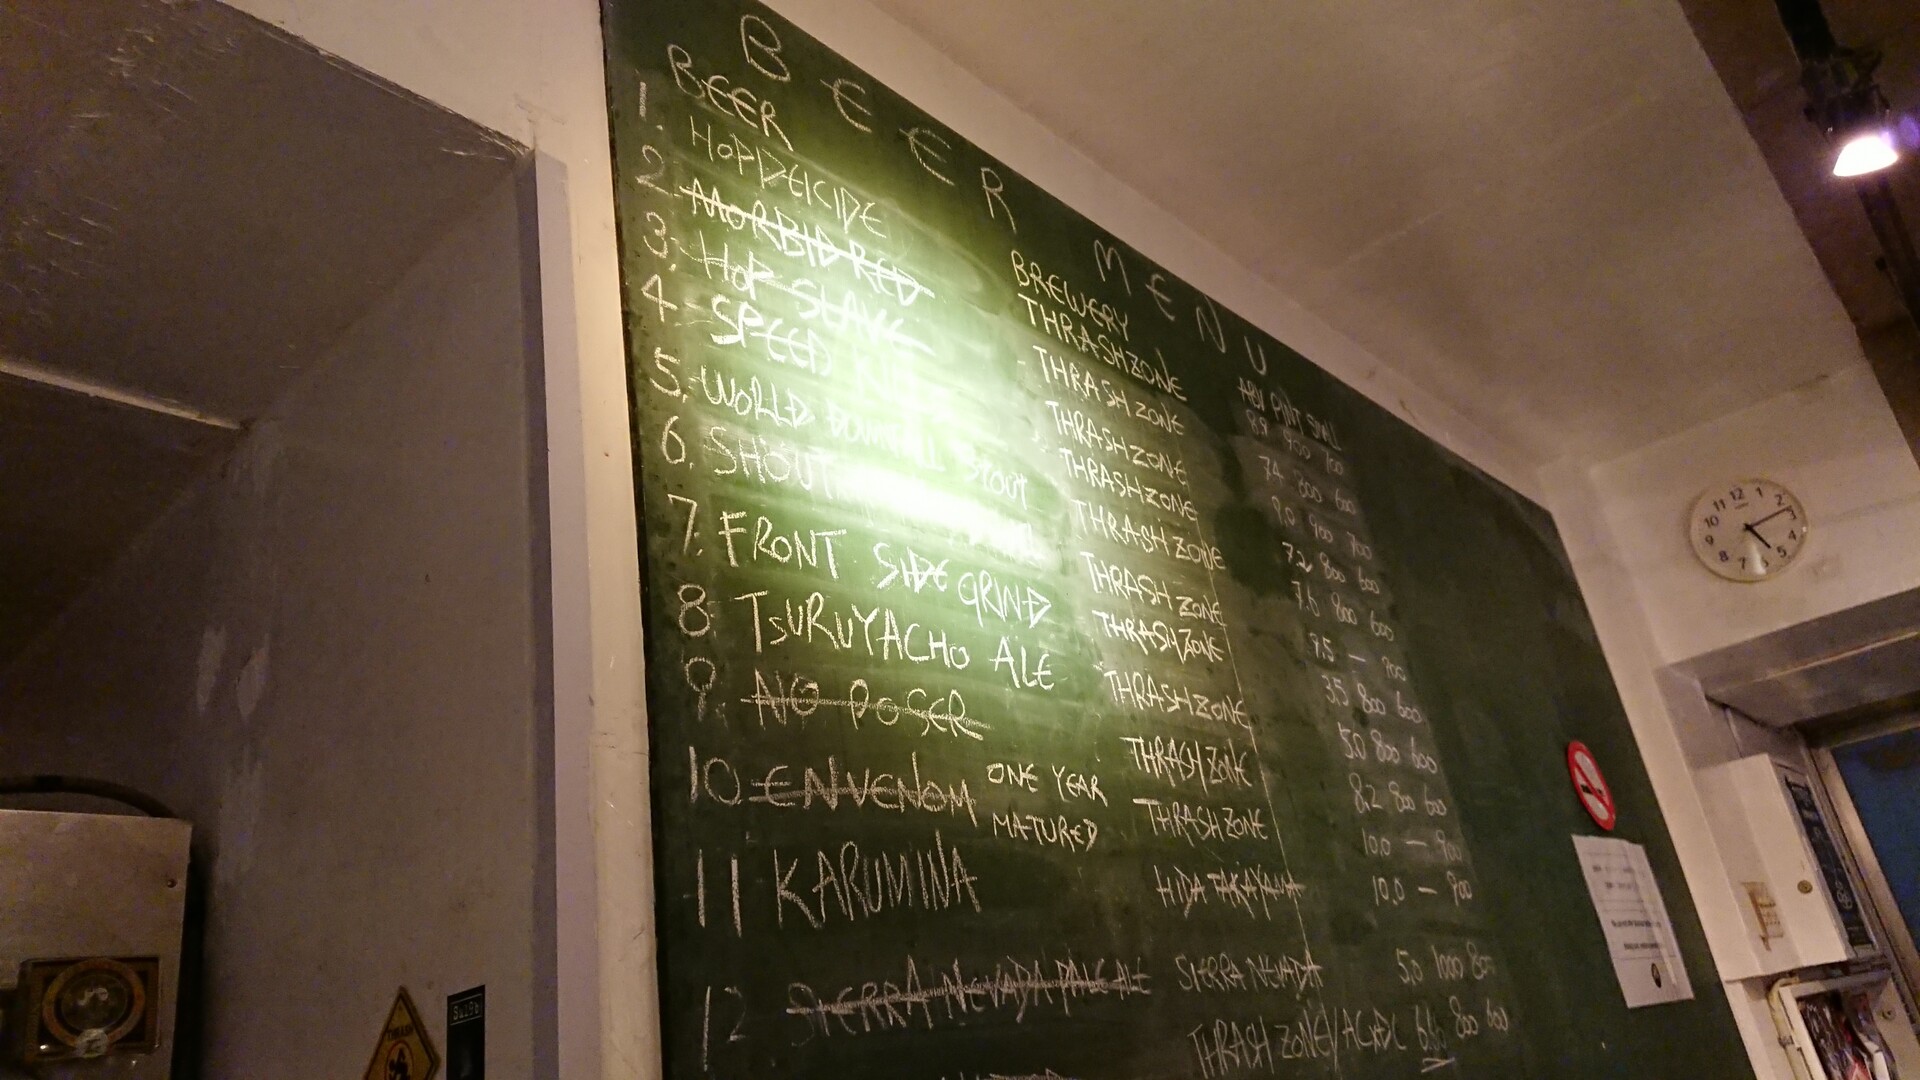 BEER MENU
BEER BREWERY ABV PINT SMALL
1. HOPDEICIDE THRASHZONE 8.9 900 700
2. MORBID RED THRASHZONE 7.4 800 600
3. HOP SLAVE THRASHZONE 9.0 900 700
4. SPEED THRASHZONE 7.2 800 600
5. WORLD DOWNFALL STOUT THRASHZONE 7.6 800 600
6. SHOUT THRASHZONE 9.5 — 900
7. FRONT SIDE GRIND THRASHZONE 3.5 800 600
8. TSURUYACHO ALE THRASHZONE 5.0 800 600
9. NO POSER THRASHZONE 8.2 800 600
10 ENVENOM ONE YEAR MATURED THRASHZONE 10.0 — 900
11 KARUMINA HIDA TAKAYAMA 10.0 — 900
12 SIERRA NEVADA PALE ALE SIERRA NEVADA 5.0 1000 800
THRASH ZONE/ACADC 800 600
12 1 2 3 4 5 6 7 8 9 10 11